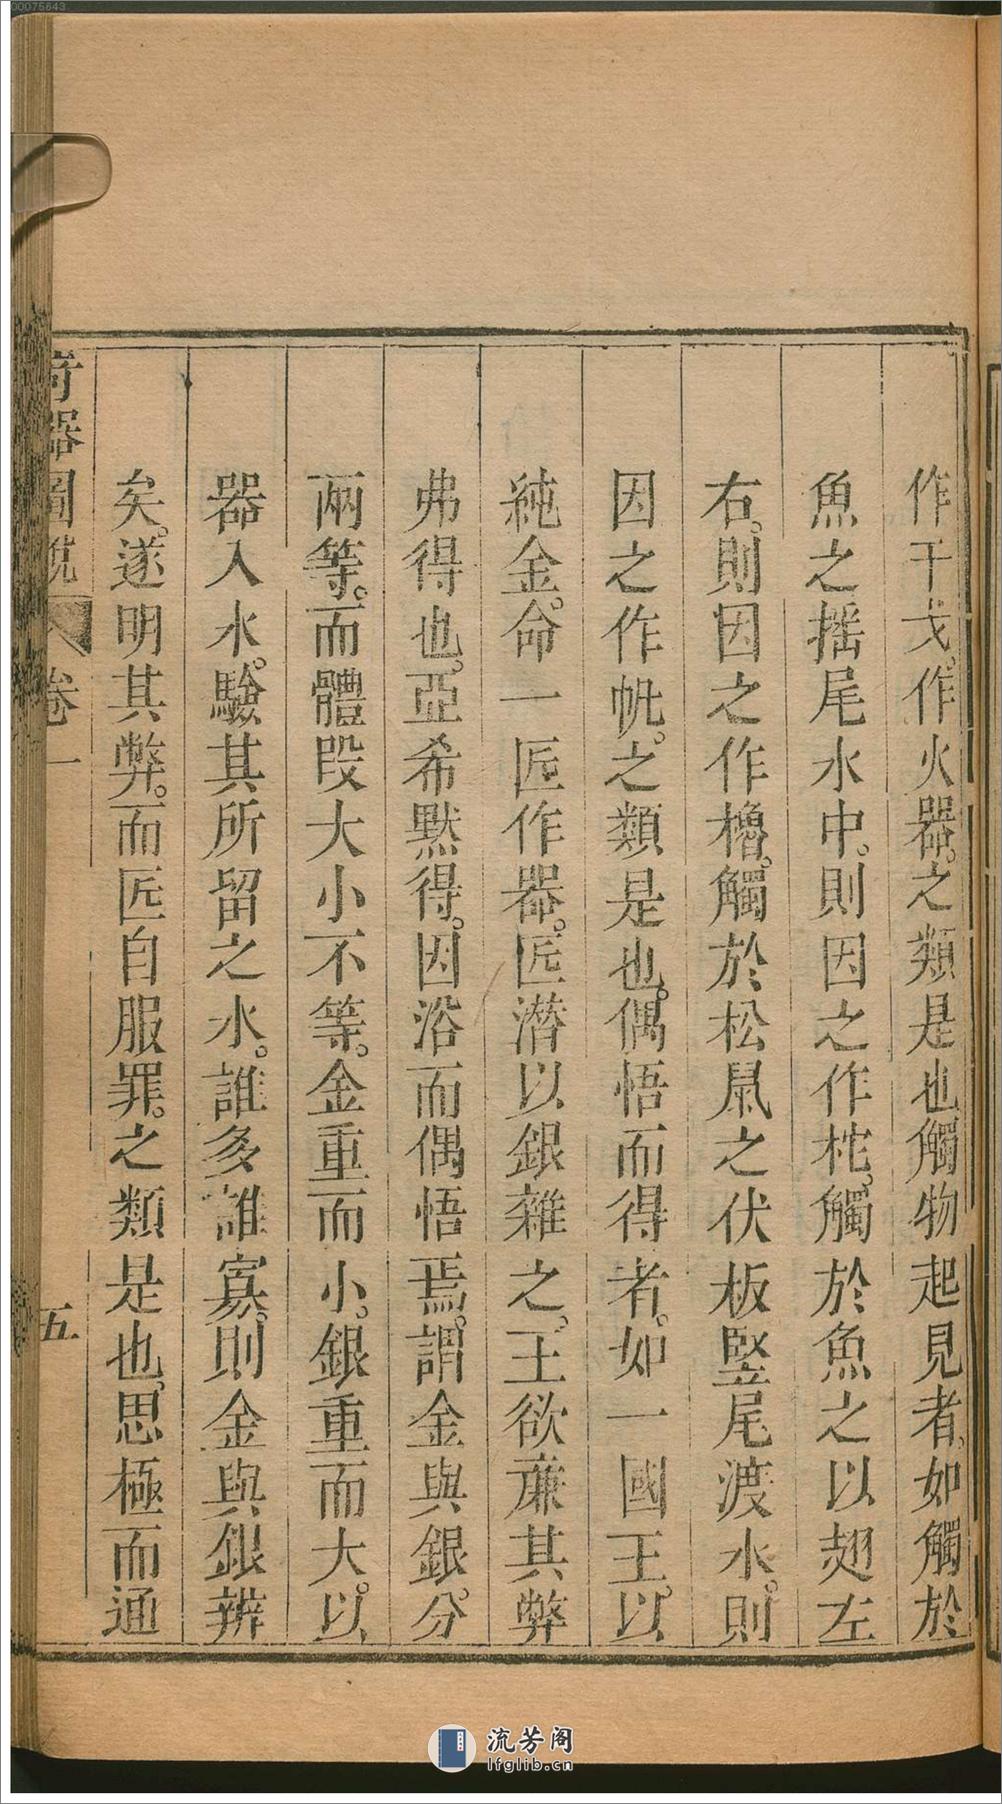 作干戈。作火器。之類是也觸物起見者。如觸於
魚之摇尾水中。則因之作柁。觸於魚之以翅左
右。則因之作櫓。觸於松鼠之伏板竪尾渡水。則
因之作帆。之類是也。偶悟而得者。如一國王。以
純金。命一匠作器。匠潜以銀雜之。王欲亷其弊
弗得也。亞希默得。因浴而偶悟焉。謂金與銀。分
兩等。而體段大小不等。金重而小。銀重而大。以
器入水。驗其所留之水。誰多誰寡。則金與銀辨
矣。遂明其弊。而匠自服罪。之類是也。思極而通
奇器圖說 卷一 五
00075643
流芳阁
lfglib.cn